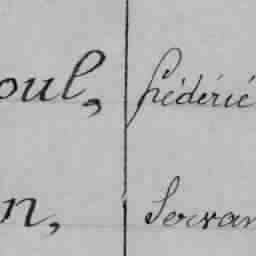 oul, frédéric
n, Servan